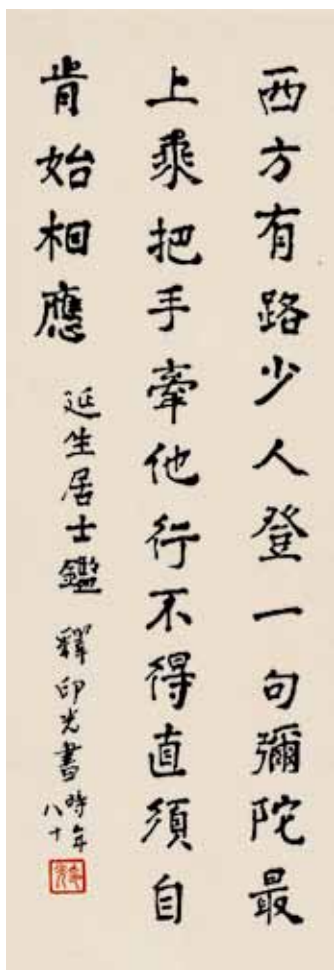 西方有路少人登一句彌陀最
上乘把手牽他行不得直須自
肯始相應
延生居士鑑
釋印光書時年
八十